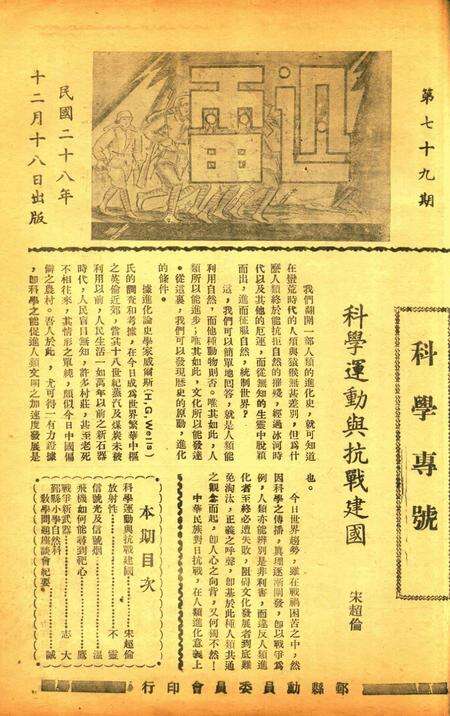 第七十九期
迅雷
民國二十八年
十二月十八日出版
科學專號
科學運動與抗戰建國
宋超倫
我們翻開一部人類的進化史，就可知道
在蠻荒時代的人類與猿猴無甚差別，但爲什
麼人類終於能抗拒自然的摧殘，經過冰河時
代以及其他的厄運，而從無知的生靈中脫穎
而出，進而征服自然，統制世界？
這，我們可以簡單地回答，就是人類能
利用自然，而他種動物則否。唯其如此，人
類所以能進步；唯其如此，文化所以能發達
。從這裏，我們可以發現歷史的原動，進化
的條件。
據進化論史學家威爾斯(H.G.Wells)
氏的調查和考據，在今日成爲世界繁華中樞
之英倫近郊，當其十八世紀蒸汽及煤炭未被
利用以前，人民生活一如萬年以前之新石器
時代，人民盲目無知，許多村莊，甚至老死
不相往來，其情形之單純，頗似今日中國偏
僻之農村。吾人於此，尤可得一有力證據
，卽科學之能促進人類文明之加速度發展是
也。
今日世界趨勢，雖在戰禍困苦之中，然
因科學之傳播，眞理逐漸開發，卽以戰爭爲
例，人類亦能辨別是非利害，而違反人類進
化者至終必遭失敗，阻碍文化發展者到底難
免淘汰，正義之呼聲，卽基於此種人類共通
之觀念而起，卽人心之向背，又何獨不然！
中華民族對日抗戰，在人類進化意義上
本期目次
科學運動與抗戰建國……宋超倫
放射性……不靈
信號光及信號烟……溫
飛機如何能尋到祀心……鷹
戰爭新武器……志大
鄞縣小學自然科
敎學問題座談會紀要……誠
鄞縣動員委員會印行